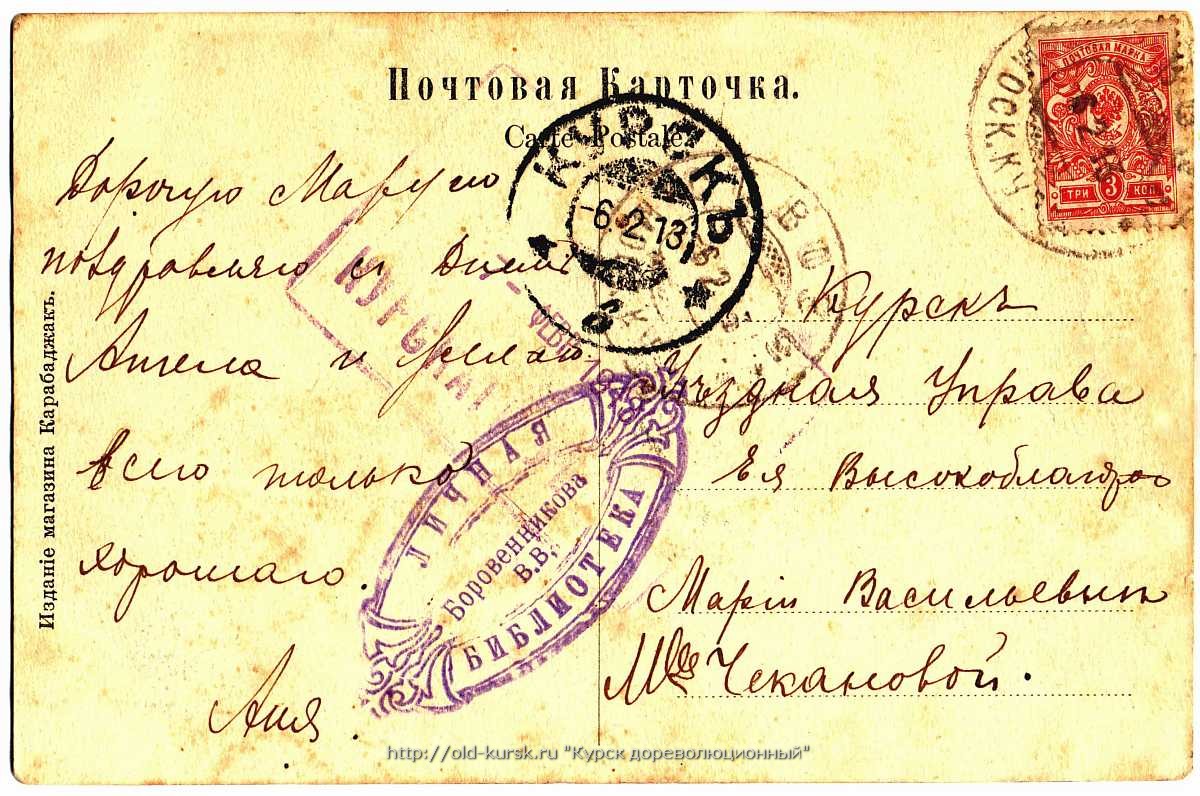 Почтовая Карточка.
Carte Postale.
ПОЧТОВАЯ МАРКА
ТРИ 3 КОП.
КУРСКЪ
-6.2.13
Дорогую Марусю
поздравляю съ Днемъ
Ангела и желаю
всего только
хорошаго.
Аня.
Курскъ
Уѣздная Управа
Ея Высокоблагор
Маріи Васильевнѣ
Mlle Чекановой.
ЛИЧНАЯ
Боровенникова
В.В.
БИБЛИОТЕКА
Изданіе магазина Карабаджакъ.
http://old-kursk.ru "Курск дореволюционный"